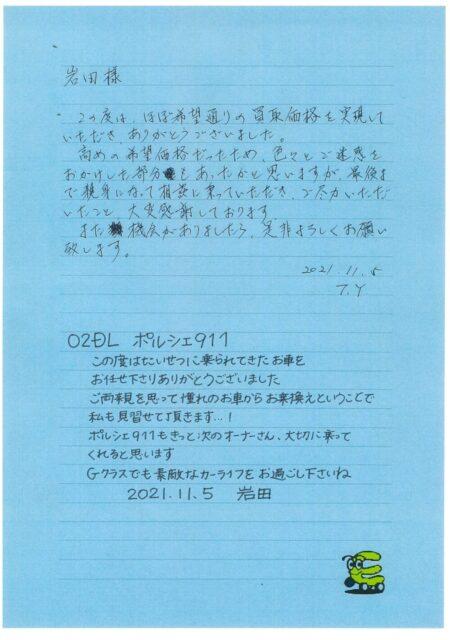 岩田様
この度は、ほぼ希望通りの買取価格を実現して
いただき、ありがとうございました。
高めの希望価格だったため、色々とご迷惑を
おかけした部分もあったかと思いますが、最後ま
で親身になって相談に乗っていただき、ご尽力いただ
いたこと、大変感謝しております。
また機会がありましたら、是非よろしくお願い
致します。
2021.11.5
T.Y
02DL ポルシェ911
この度はたいせつに乗られてきたお車を
お任せ下さりありがとうございました
ご両親を思って憧れのお車からお乗換えということで
私も見習せて頂きます...!
ポルシェ911もきっと次のオーナーさん、大切に乗って
くれると思います
Gクラスでも素敵なカーライフをお過ごし下さいね
2021.11.5 岩田